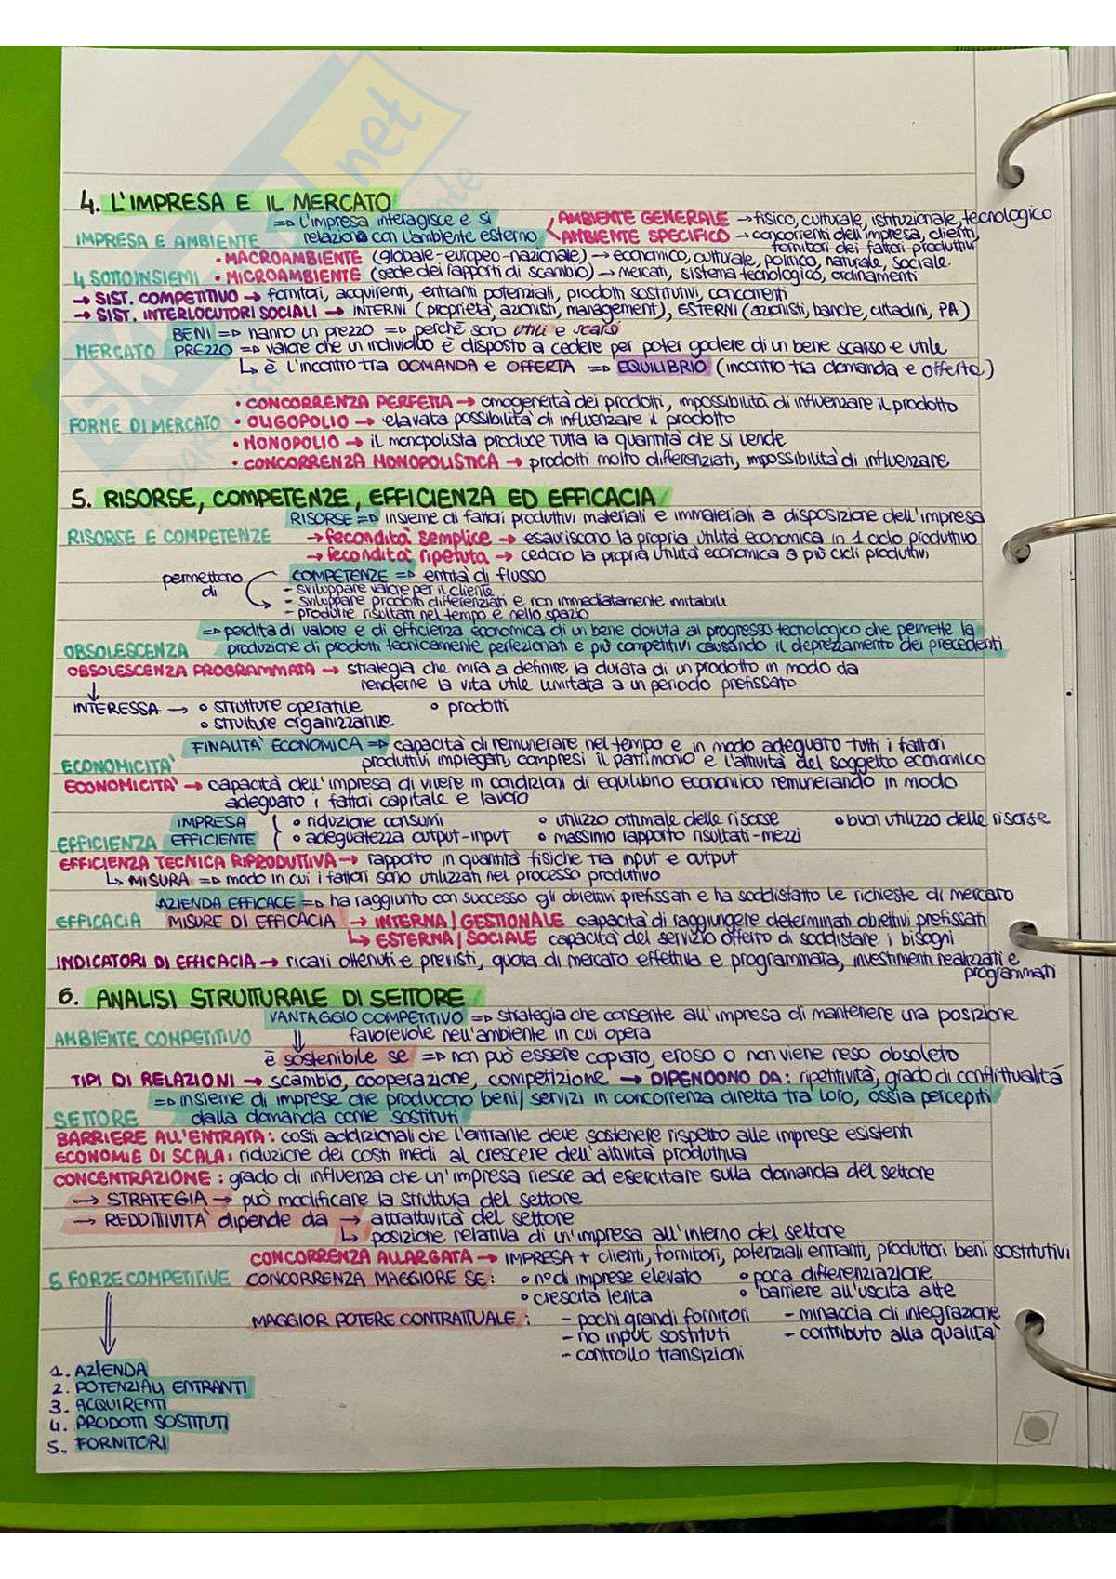 4. L'IMPRESA E IL MERCATO
IMPRESA E AMBIENTE => L'impresa interagisce e si relaziona con l'ambiente esterno
AMBIENTE GENERALE → fisico, culturale, istituzionale, tecnologico
AMBIENTE SPECIFICO → concorrenti dell'impresa, clienti, fornitori dei fattori produttivi
4 SOTTOINSIEMI
• MACROAMBIENTE (globale-europeo-nazionale) → economico, culturale, politico, naturale, sociale
• MICROAMBIENTE (sede dei rapporti di scambio) → mercati, sistema tecnologico, ordinamenti
→ SIST. COMPETITIVO → fornitori, acquirenti, entranti potenziali, prodotti sostitutivi, concorrenti
→ SIST. INTERLOCUTORI SOCIALI → INTERNI (proprietà, azionisti, management), ESTERNI (azionisti, banche, cittadini, PA)
BENI => hanno un prezzo => perché sono utili e scarsi
MERCATO PREZZO => valore che un individuo è disposto a cedere per poter godere di un bene scarso e utile
↳ è l'incontro tra DOMANDA e OFFERTA => EQUILIBRIO (incontro tra domanda e offerta)
FORME DI MERCATO
• CONCORRENZA PERFETTA → omogeneità dei prodotti, impossibilità di influenzare il prodotto
• OLIGOPOLIO → elavata possibilità di influenzare il prodotto
• MONOPOLIO → il monopolista produce tutta la quantità che si vende
• CONCORRENZA MONOPOLISTICA → prodotti molto differenziati, impossibilità di influenzare
5. RISORSE, COMPETENZE, EFFICIENZA ED EFFICACIA
RISORSE => insieme di fattori produttivi materiali e immateriali a disposizione dell'impresa
RISORSE E COMPETENZE → fecondità semplice → esauriscono la propria utilità economica in 1 ciclo produttivo
→ fecondità ripetuta → cedono la propria utilità economica a più cicli produttivi
COMPETENZE => entità di flusso
permettono di
- sviluppare valore per il cliente
- sviluppare prodotti differenziati e non immediatamente imitabili
- produrre risultati nel tempo e nello spazio
OBSOLESCENZA => perdita di valore e di efficienza economica di un bene dovuta al progresso tecnologico che permette la
produzione di prodotti tecnicamente perfezionati e più competitivi causando il deprezzamento dei precedenti
OBSOLESCENZA PROGRAMMATA → strategia che mira a definire la durata di un prodotto in modo da
renderne la vita utile limitata a un periodo prefissato
INTERESSA → ∘ strutture operative ∘ prodotti
∘ strutture organizzative
FINALITA' ECONOMICA => capacità di remunerare nel tempo e in modo adeguato tutti i fattori
ECONOMICITA' produttivi impiegati, compresi il patrimonio e l'attività del soggetto economico
ECONOMICITA' → capacità dell'impresa di vivere in condizioni di equilibrio economico remunerando in modo
adeguato i fattori capitale e lavoro
EFFICIENZA IMPRESA EFFICIENTE
∘ riduzione consumi ∘ utilizzo ottimale delle risorse ∘ buon utilizzo delle risorse
∘ adeguatezza output-input ∘ massimo rapporto risultati-mezzi
EFFICIENZA TECNICA RIPRODUTTIVA → rapporto in quantità fisiche tra input e output
↳ MISURA => modo in cui i fattori sono utilizzati nel processo produttivo
AZIENDA EFFICACE => ha raggiunto con successo gli obiettivi prefissati e ha soddisfatto le richieste di mercato
EFFICACIA MISURE DI EFFICACIA → INTERNA/GESTIONALE capacità di raggiungere determinati obiettivi prefissati
↳ ESTERNA/SOCIALE capacità del servizio offerto di soddisfare i bisogni
INDICATORI DI EFFICACIA → ricavi ottenuti e previsti, quota di mercato effettiva e programmata, investimenti realizzati e
programmati
6. ANALISI STRUTTURALE DI SETTORE
VANTAGGIO COMPETITIVO => strategia che consente all'impresa di mantenere una posizione
AMBIENTE COMPETITIVO favorevole nell'ambiente in cui opera
è sostenibile se => non può essere copiato, eroso o non viene reso obsoleto
TIPI DI RELAZIONI → scambio, cooperazione, competizione → DIPENDONO DA: ripetitività, grado di conflittualità
=> insieme di imprese che producono beni/servizi in concorrenza diretta tra loro, ossia percepiti
SETTORE dalla domanda come sostituti
BARRIERE ALL'ENTRATA: costi addizionali che l'entrante deve sostenere rispetto alle imprese esistenti
ECONOMIE DI SCALA: riduzione dei costi medi al crescere dell'attività produttiva
CONCENTRAZIONE: grado di influenza che un'impresa riesce ad esercitare sulla domanda del settore
→ STRATEGIA → può modificare la struttura del settore
→ REDDITIVITA' dipende da → attrattività del settore
↳ posizione relativa di un'impresa all'interno del settore
CONCORRENZA ALLARGATA → IMPRESA + clienti, fornitori, potenziali entranti, produttori beni sostitutivi
5 FORZE COMPETITIVE CONCORRENZA MAGGIORE SE: ∘ n° di imprese elevato ∘ poca differenziazione
∘ crescita lenta ∘ barriere all'uscita alte
MAGGIOR POTERE CONTRATTUALE: - pochi grandi fornitori - minaccia di integrazione
- no input sostituti - contributo alla qualità
- controllo transizioni
1. AZIENDA
2. POTENZIALI ENTRANTI
3. ACQUIRENTI
4. PRODOTTI SOSTITUTI
5. FORNITORI